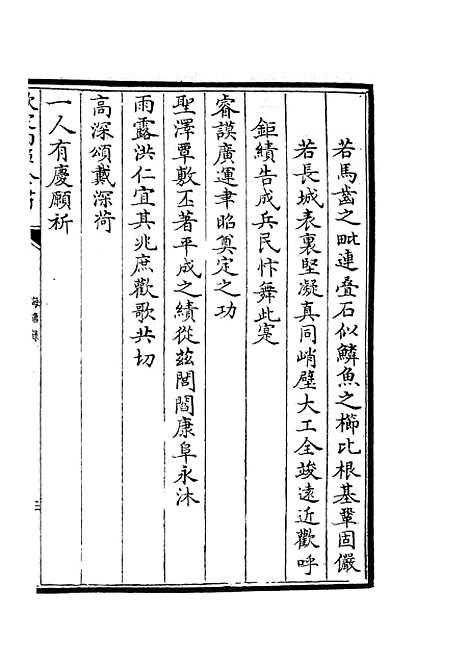 若馬齒之毗連疊石似鱗魚之櫛比根基鞏固儼
若長城表裏堅凝真同峭壁大工全竣遠近歡呼
鉅績告成兵民忭舞此寔
睿謨廣運聿昭奠定之功
聖澤覃敷丕著平成之績從兹閭閻康阜永沐
雨露洪仁宜其兆庶歡歌共切
高深頌戴深荷
一人有慶願祈
欽定四庫全書
海塘録